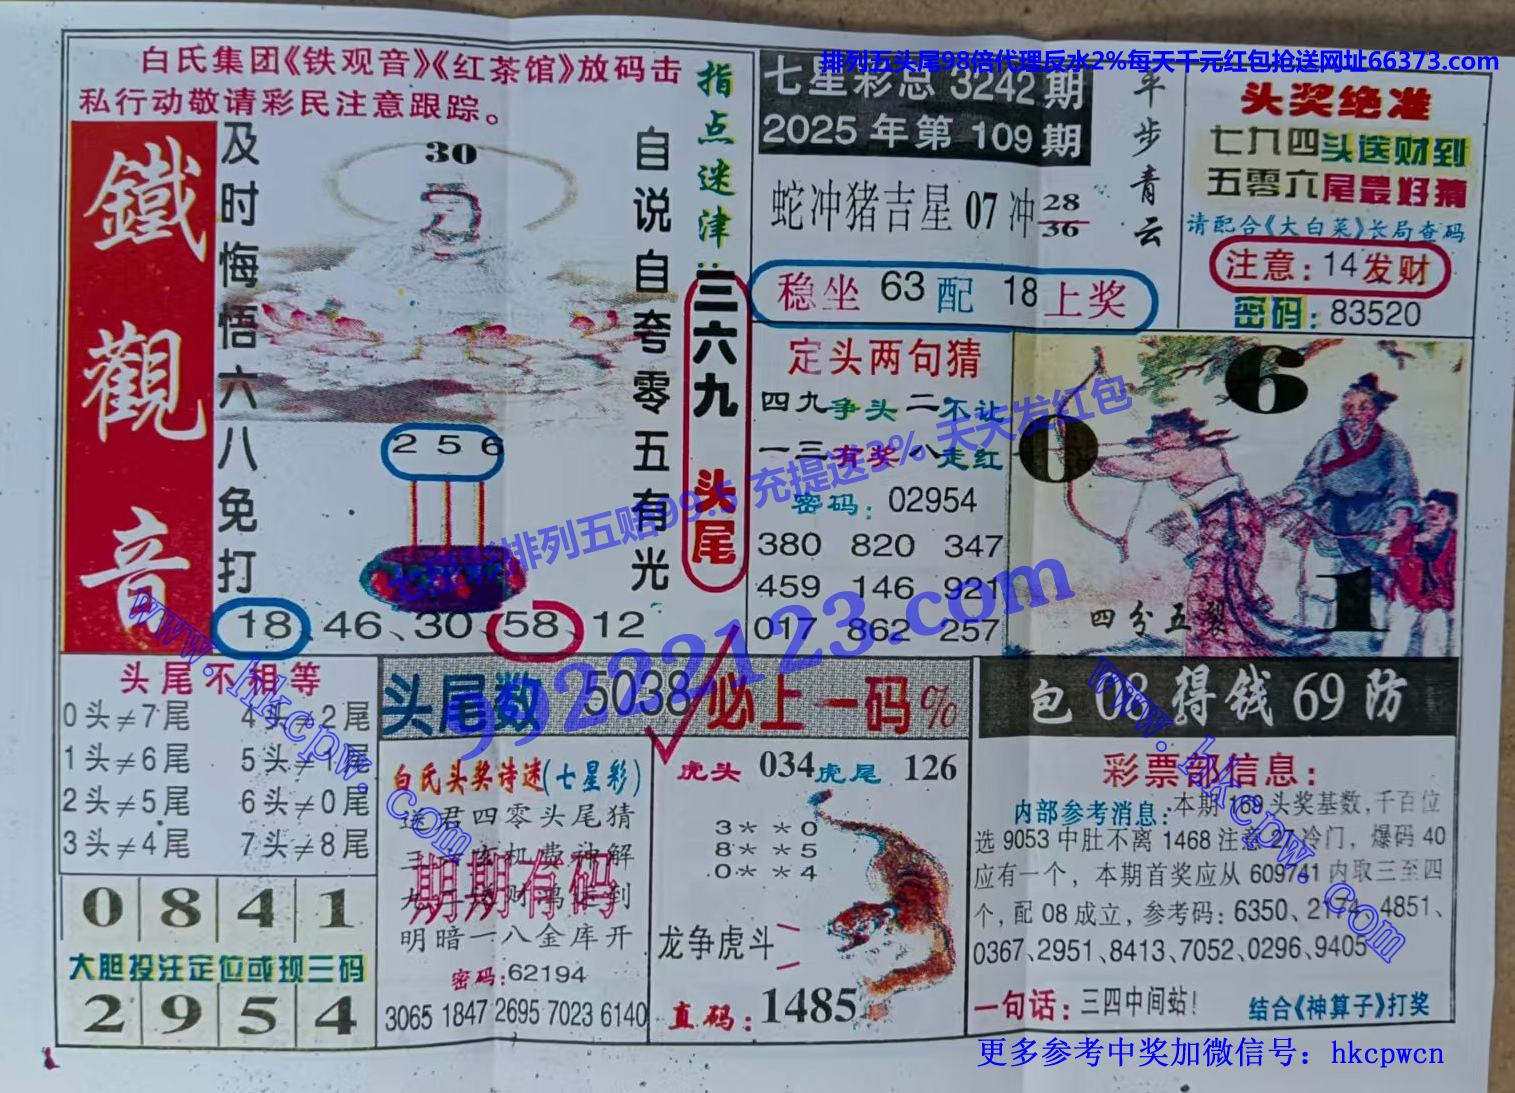 排列五头尾98倍代理反水2%每天千元红包抢送网址66373.com
白氏集团《铁观音》《红茶馆》放码击
私行动敬请彩民注意跟踪。
鐵觀音
及时悔悟六八免打
30
256
自说自夸零五有光
18、46、30、58、12
指点迷津:
三六九 头尾
七星彩总3242期
2025年第109期
蛇冲猪吉星07冲
28
36
稳坐63配18上奖
平步青云
头奖绝准
七九四头送财到
五零六尾最好猜
请配合《大白菜》长局查码
注意:14发财
密码:83520
定头两句猜
四九争头二不让
一三有奖八走红
密码:02954
380 820 347
459 146 921
017 862 257
0
6
1
四分五裂
七星彩排列五赔99.5 充提送3% 天天发红包
99222123.com
www.hkcpw.com
www.hkcpw.com
头尾不相等
0头≠7尾 4头≠2尾
1头≠6尾 5头≠1尾
2头≠5尾 6头≠0尾
3头≠4尾 7头≠8尾
0841
大胆投注定位或现三码
2954
头尾数 5038 必上一码%
白氏头奖诗迷(七星彩)
送君四零头尾猜
机费神解
财 到
明暗一八金库开
期期有码
密码:62194
3065 1847 2695 7023 6140
虎头 034 虎尾 126
3**0
8**5
0**4
龙争虎斗
直码:1485
包08得钱69防
彩票部信息:
内部参考消息:本期169头奖基数,千百位
选9053中肚不离1468注意27冷门，爆码40
应有一个，本期首奖应从609741内取三至四
个，配08成立，参考码：6350、2174、4851、
0367、2951、8413、7052、0296、9405
一句话:三四中间站!
结合《神算子》打奖
更多参考中奖加微信号：hkcpwcn